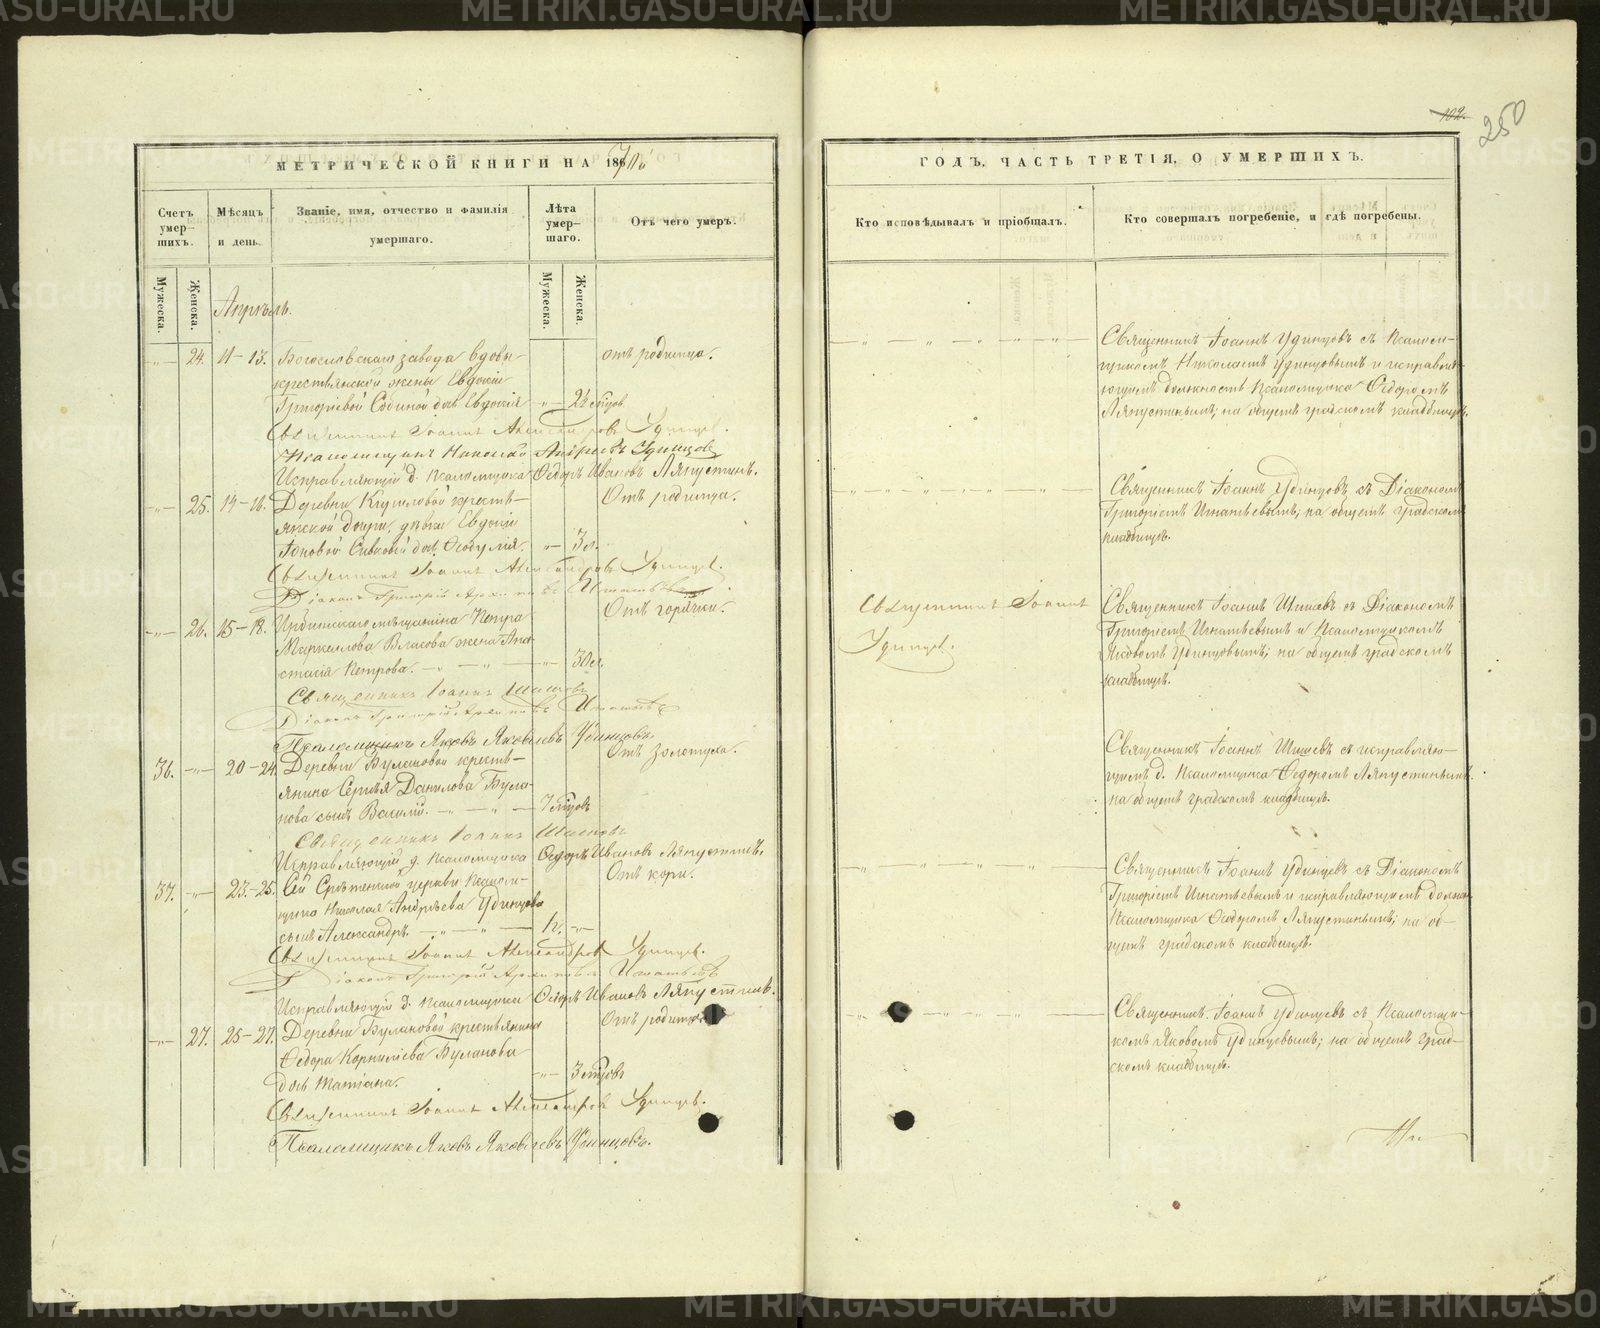 102.
250
МЕТРИЧЕСКОЙ КНИГИ НА 186
ГОДЪ, ЧАСТЬ ТРЕТІЯ, О УМЕРШИХЪ.
Счетъ умер-шихъ.
Мѣсяцъ и день.
Званіе, имя, отчество и фамилія умершаго.
Лѣта умер-шаго.
Отъ чего умеръ.
Кто исповѣдывалъ и пріобщалъ.
Кто совершалъ погребеніе, и гдѣ погребены.
Мужеска.
Женска.
Мужеска.
Женска.
Апрѣль.
24. 11-13. Богословскаго завода вдовы
крестьянской жены Евдокіи
Григоріевой дочь Евдокія
отъ родимца.
Священникъ Іоаннъ Александровъ Удинцевъ.
Псаломщикъ Николай Андреевъ Удинцовъ
Исправляющій д. Псаломщика Ѳедоръ Ивановъ Ляпустинъ.
Священникъ Іоаннъ Удинцовъ съ Псалом-
щикомъ Николаемъ Удинцовымъ и исправля-
ющимъ должность Псаломщика Ѳедоромъ
Ляпустинымъ; на общемъ градскомъ кладбищѣ.
25. 14-16. Деревни Кириловой кресть-
янской дочери, дѣвки Евдокіи
дочь
3 д.
Отъ родимца.
Священникъ Іоаннъ Александровъ Удинцевъ.
Діаконъ Григорій Игнатьевъ
Священникъ Іоаннъ Удинцовъ съ Діакономъ
Григоріемъ Игнатьевымъ; на общемъ градскомъ
кладбищѣ.
26. 15-18. Ирбитскаго мѣщанина Петра
Маркеллова Власова жена Ана-
стасія Петрова.
30 л.
Отъ горячки.
Священникъ Іоаннъ
Удинцевъ.
Священникъ Іоаннъ Шишевъ
Діаконъ Григорій Игнатьевъ
Псаломщикъ Яковъ Яковлевъ Удинцовъ.
Священникъ Іоаннъ Шишевъ съ Діакономъ
Григоріемъ Игнатьевымъ и Псаломщикомъ
Яковомъ Удинцовымъ; на общемъ градскомъ
кладбищѣ.
36. 20-24. Деревни Булановой кресть-
янина Сергѣя Данилова Була-
нова сынъ Василій.
7 м-цовъ
Отъ золотухи.
Священникъ Іоаннъ Шишевъ
Исправляющій д. Псаломщика Ѳедоръ Ивановъ Ляпустинъ.
Священникъ Іоаннъ Шишевъ съ исправляю-
щимъ д. Псаломщика Ѳедоромъ Ляпустинымъ.
на общемъ градскомъ кладбищѣ.
37. 23-25. Сей Срѣтенской церкви Псалом-
щика Николая Андрѣева Удинцова
сынъ Александръ.
Отъ кори.
Священникъ Іоаннъ Александровъ Удинцевъ.
Діаконъ Григорій Игнатьевъ
Исправляющій д. Псаломщика Ѳедоръ Ивановъ Ляпустинъ.
Священникъ Іоаннъ Удинцевъ съ Діакономъ
Григоріемъ Игнатьевымъ и исправляющимъ должн.
Псаломщика Ѳедоромъ Ляпустинымъ; на об-
щемъ градскомъ кладбищѣ.
27. 25-27. Деревни Булановой крестьянина
Ѳедора Корниліева Буланова
дочь Татіана.
3 м-цовъ
Отъ родимца
Священникъ Іоаннъ Александровъ Удинцевъ.
Псаломщикъ Яковъ Яковлевъ Удинцовъ.
Священникъ Іоаннъ Удинцевъ съ Псаломщи-
комъ Яковомъ Удинцовымъ; на общемъ град-
скомъ кладбищѣ.
METRIKI.GASO-URAL.RU